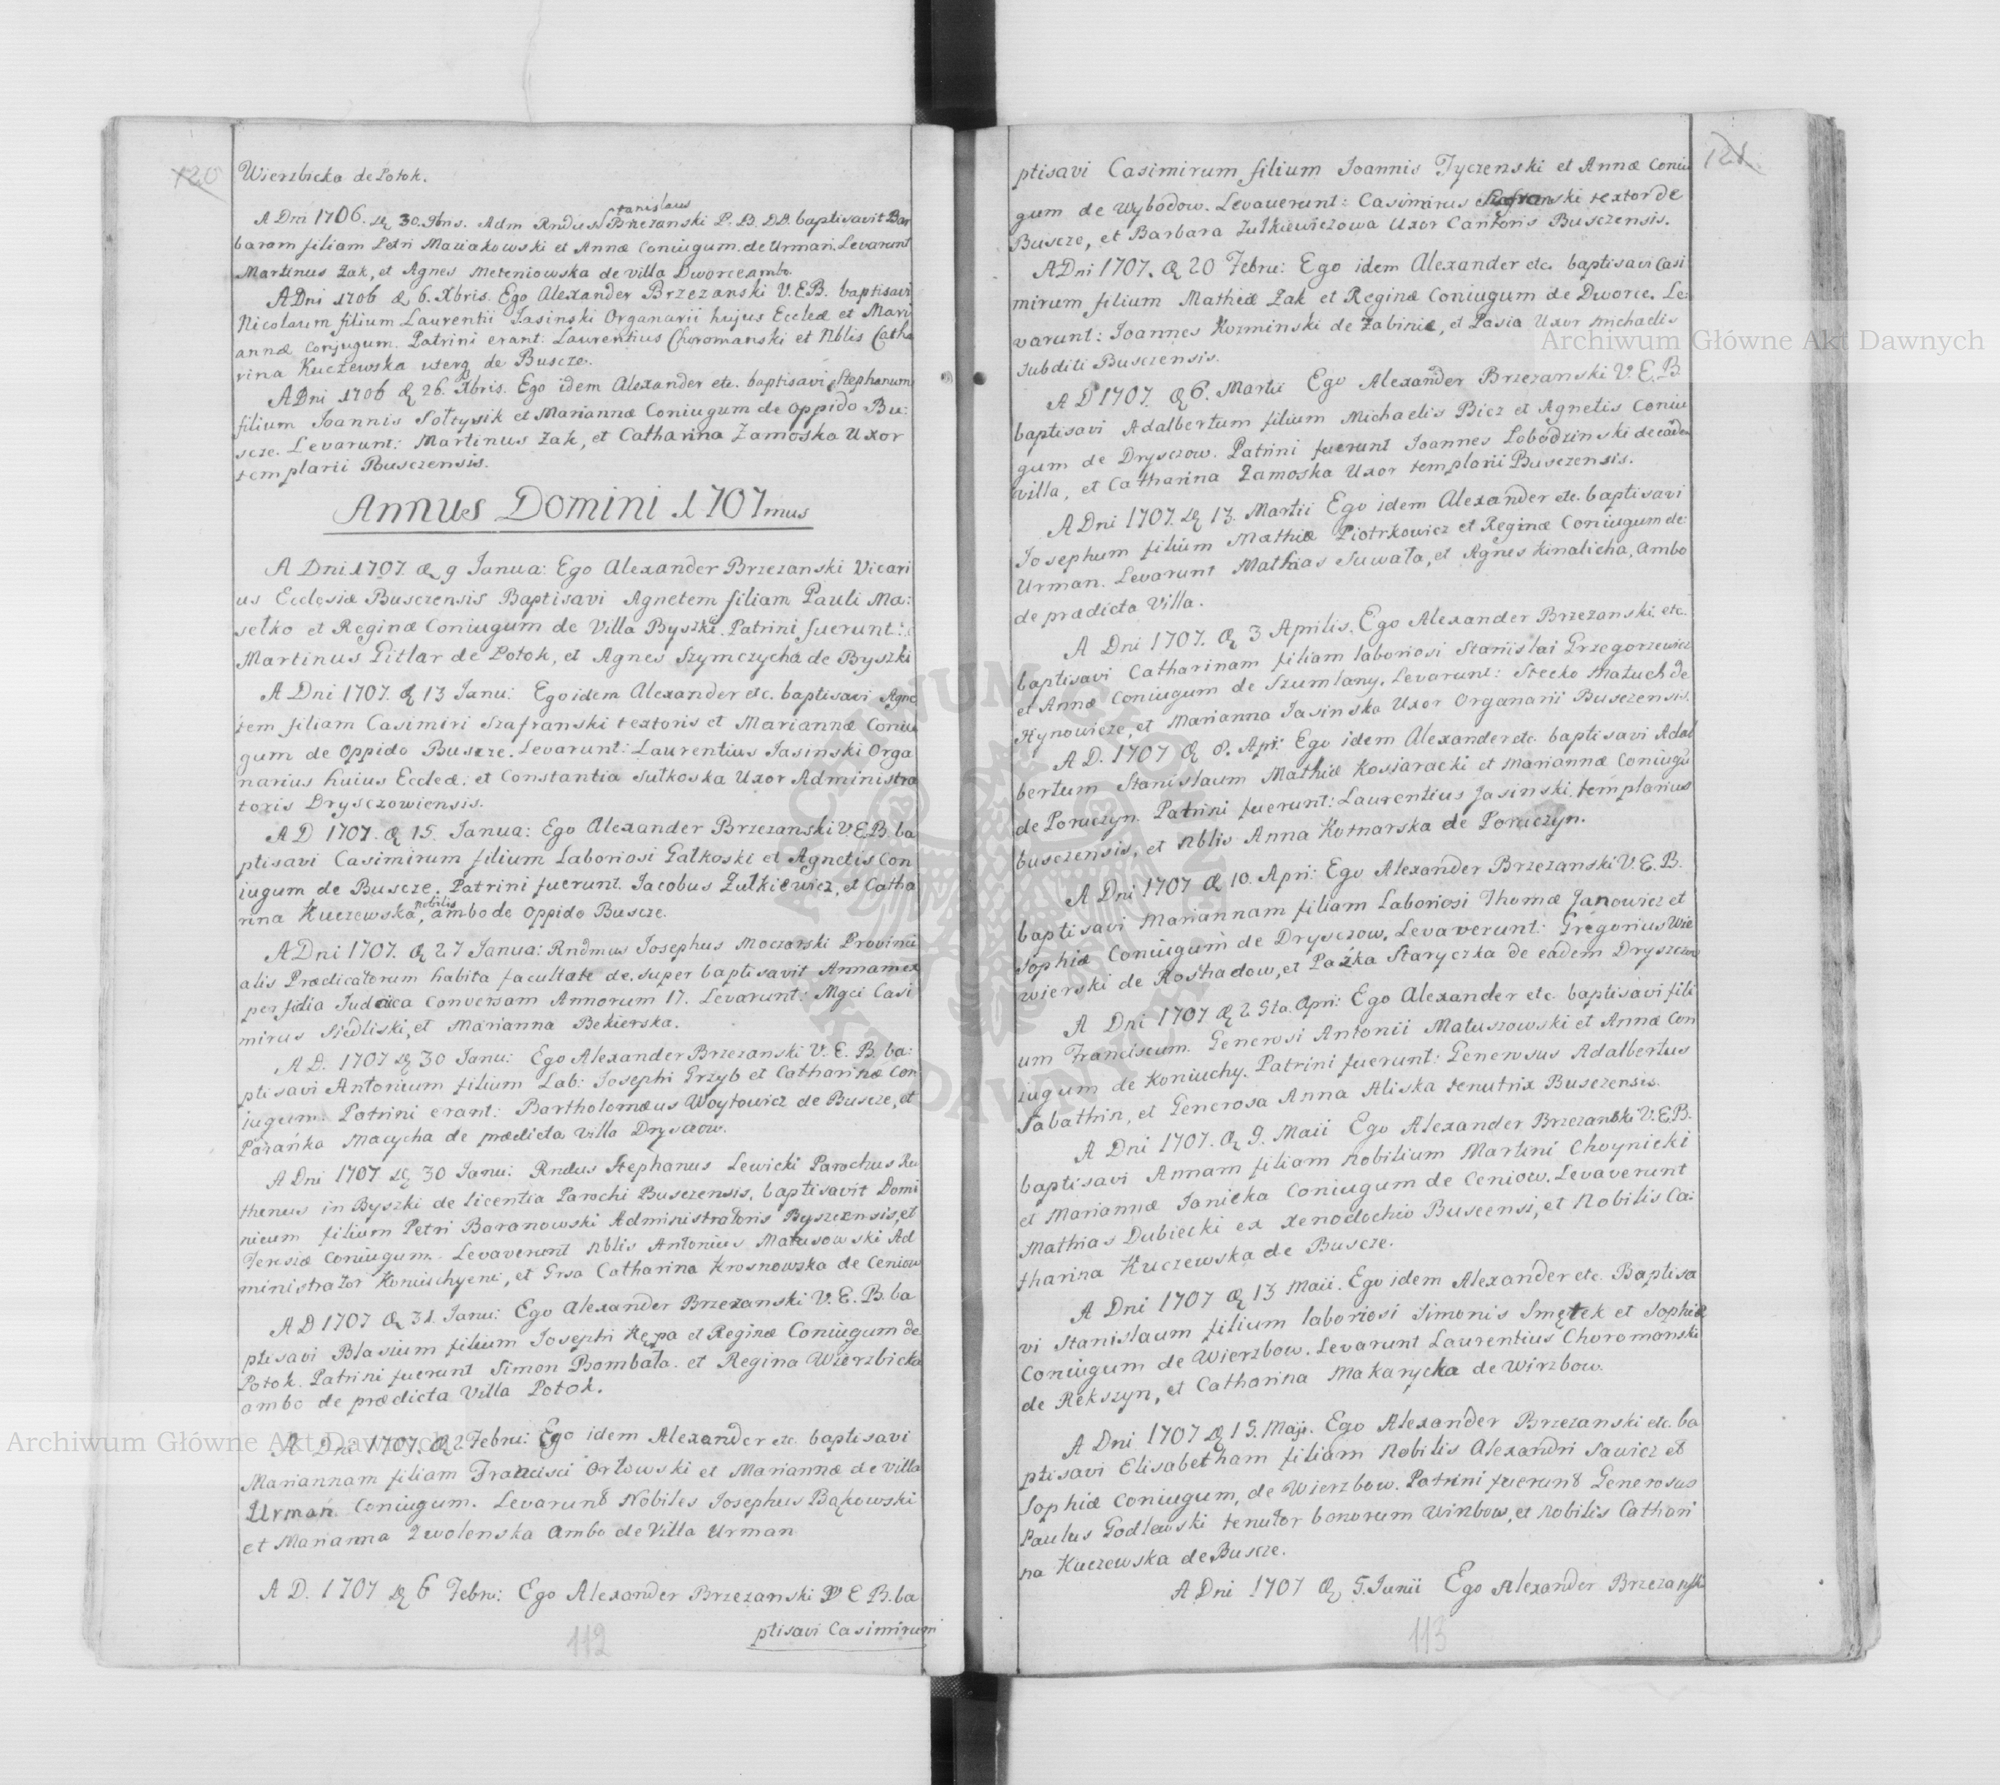 120
Wierzbicka de Potok.
A Dni 1706. 30. 9bris. Adm Rndus Stanislaus Brzezanski P. B. DD. baptisavit Bar
baram filiam Petri Maziakowski et Annæ Coniugum. de Urman. Levarunt
Martinus Zak, et Agnes Meteniowska de villa Dworce ambo.
A Dni 1706 6. Xbris. Ego Alexander Brzezanski V. E B. baptisavi
Nicolaum filium Laurentii Jasinski Organarii hujus Eccleæ et Mari
annæ Conjugum. Patrini erant. Laurentius Choromanski et Nblis Catha
rina Kuczewska uterq de Buscze.
A Dni 1706 26. Xbris. Ego idem Alexander etc. baptisavi Stephanum
filium Joannis Soltysik et Mariannæ Coniugum de Oppido Bu:
scze. Levarunt: Martinus Zak, et Catharina Zamoska Uxor
templarii Busczensis.
Annus Domini 1707mus
A Dni 1707. 9 Janua: Ego Alexander Brzezanski Vicari
us Ecclesiæ Busczensis Baptisavi Agnetem filiam Pauli Ma:
selko et Reginæ Coniugum de Villa Byszki. Patrini fuerunt:
Martinus Pitlar de Potok, et Agnes Szymczycha de Byszki
A Dni 1707. 13 Janu: Ego idem Alexander etc. baptisavi Agne
tem filiam Casimiri Szafranski textoris et Mariannæ Coniu
gum de Oppido Buscze. Levarunt: Laurentius Jasinski Orga
narius huius Eccleæ: et Constantia Sulkoska Uxor Administra
toris Drysczowiensis.
A D 1707. 15. Janua: Ego Alexander Brzezanski V E B. ba
ptisavi Casimirum filium Laboriosi Galkoski et Agnetis Con
iugum de Buscze. Patrini fuerunt. Jacobus Zulkiewicz, et Catha
rina Kuczewska nobilis, ambo de Oppido Buscze.
A Dni 1707. 27 Janua: Rndmus Josephus Moczarski Provinci
alis Prædicatorum habita facultate de super baptisavit Annam ex
perfidia Judaica Conversam Annorum 17. Levarunt: Mgci Casi
mirus Siedliski, et Marianna Bekierska.
A D. 1707 30 Janu: Ego Alexander Brzezanski V. E. B. ba:
ptisavi Antonium filium Lab: Josephi Grzyb et Catharinæ Con
jugum. Patrini erant: Bartholomæus Woytowicz de Buscze, et
Parańka Macycha de prædicta Villa Drysczow.
A Dni 1707 30 Janu: Rndus Stephanus Lewicki Parochus Ru
thenus in Byszki de licentia Parochi Busczensis. baptisavit Domi
nicum filium Petri Baranowski Administratoris Byszczensis, et
Teresiæ Coniugum. Levaverunt Nblis Antonius Matusowski Ad
ministrator Koniuchyens, et Grsa Catharina Krosnowska de Ceniow
A D 1707 31. Janu: Ego Alexander Brzezanski V. E. B. ba
ptisavi Blasium filium Josephi Kępa et Reginæ Coniugum de
Potok. Patrini fuerunt Simon Bombała. et Regina Wierzbicka
ambo de prædicta Villa Potok.
A Dni 1707. 2 Febru: Ego idem Alexander etc. baptisavi
Mariannam filiam Francisci Orłowski et Mariannæ de villa
Urmań Coniugum. Levarunt Nobiles Josephus Bąkowski
et Marianna Zwolenska Ambo de Villa Urman
A D. 1707 6 Febru: Ego Alexander Brzezanski V E B. ba
ptisavi Casimirum
112
121.
ptisavi Casimirum filium Joannis Tyczenski et Annæ Coniu
gum de Wybodow. Levaverunt: Casimirus Szafranski textor de
Buscze, et Barbara Zulkiewiczowa Uxor Cantoris Busczensis.
A Dni 1707. 20 Febru: Ego idem Alexander etc. baptisavi Casi
mirum filium Mathiæ Zak et Reginæ Coniugum de Dworce. Le:
varunt: Joannes Kozminski de Zabinie, et Pasia Uxor Michaelis
Subditi Busczensis.
A D 1707. 6. Martii Ego Alexander Brzezanski V. E. B.
baptisavi Adalbertum filium Michaelis Bicz et Agnetis Coniu
gum de Drysczow. Patrini fuerunt Joannes Lobodzinski de eadem
villa, et Catharina Zamoska Uxor templarii Busczensis.
A Dni 1707. 13. Martii Ego idem Alexander etc. baptisavi
Josephum filium Mathiæ Piotrkowicz et Reginæ Coniugum de
Urman. Levarunt Mathias Suwała, et Agnes Kinalicha, ambo
de prædicta Villa.
A Dni 1707. 3 Aprilis. Ego Alexander Brzezanski. etc.
baptisavi Catharinam filiam laboriosi Stanislai Grzegorzewicz
et Annæ Coniugum de Szumlany. Levarunt: Stecko Matuch de
Hynowicze, et Marianna Jasinska Uxor Organarii Busczensis.
A D. 1707 8. Apri: Ego idem Alexander etc. baptisavi Adal
bertum Stanislaum Mathiæ Kosiaracki et Mariannæ Coniugū
de Poruczyn. Patrini fuerunt: Laurentius Jasinski, templarius
busczensis, et Nblis Anna Kotnarska de Poruczyn.
A Dni 1707 10. Apri: Ego Alexander Brzezanski V. E. B.
baptisavi Mariannam filiam Laboriosi Thomæ Janowicz et
Sophiæ Coniugum de Drysczow. Levaverunt: Gregorius Wie
wierski de Roshadow, et Pazka Staryczka de eadem Dryszczow
A Dni 1707 25ta. Apri: Ego Alexander etc. baptisavi fili
um Franciscum. Generosi Antonii Matuszowski et Annæ Con
iugum de Koniuchy. Patrini fuerunt: Generosus Adalbertus
Sabathin, et Generosa Anna Aliska tenutrix Busczensis.
A Dni 1707. 9. Maii Ego Alexander Brzezanski V. E B.
baptisavi Annam filiam Nobilium Martini Choynicki
et Mariannæ Janicka Coniugum de Ceniow. Levaverunt
Mathias Dubiecki ex xenodochio Buscensi, et Nobilis Ca:
tharina Kuczewska de Buscze.
A Dni 1707 13 Maii. Ego idem Alexander etc. Baptisa
vi Stanislaum filium laboriosi Simonis Smętek et Sophiæ
Coniugum de Wierzbow. Levarunt Laurentius Choromanski
de Rekszyn, et Catharina Makarycka de Wirzbow.
A Dni 1707 15. Maji. Ego Alexander Brzezanski etc. ba
ptisavi Elisabetham filiam Nobilis Alexandri Sawicz et
Sophiæ Coniugum, de Wierzbow. Patrini fuerunt Generosus
Paulus Godlewski tenutor bonorum Wirzbow, et Nobilis Cathari
na Kuczewska de Buscze.
A Dni 1707 5. Junii Ego Alexander Brzezanski
113
Archiwum Główne Akt Dawnych
Archiwum Główne Akt Dawnych
ARCHIWUM GŁÓWNE AKT DAWNYCH